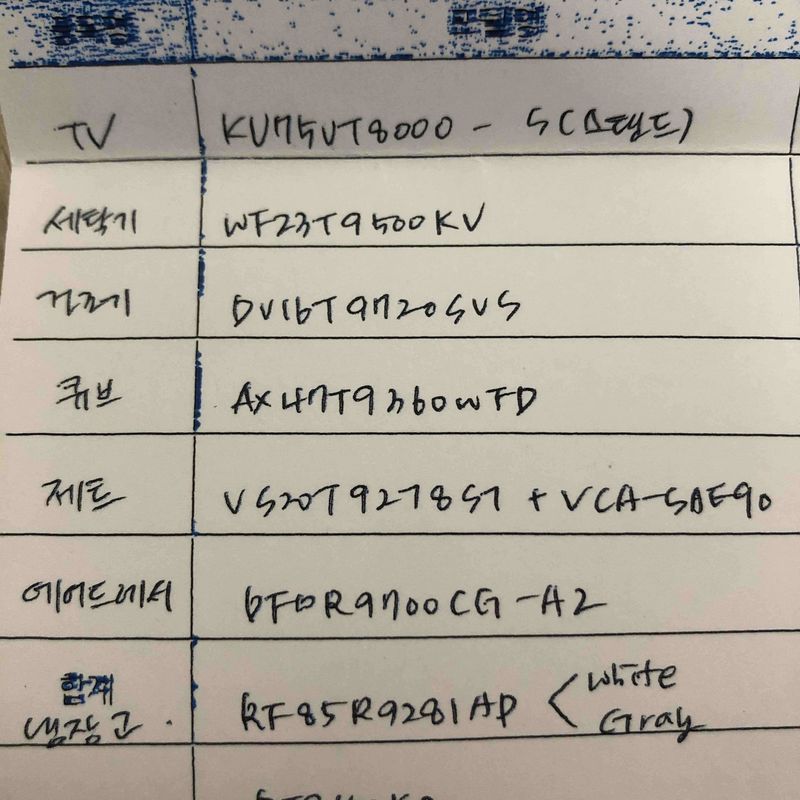 품목명 모델명
TV KU75UT8000 - S(스탠드)
세탁기 WF23T9500KV
건조기 DV16T9720SVS
큐브 AX47T9360WFD
제트 VS20T9278S7 + VCA-SAE90
에어드레서 DF10R9700CG-A2
합계
냉장고. RF85R9281AP < White
Gray